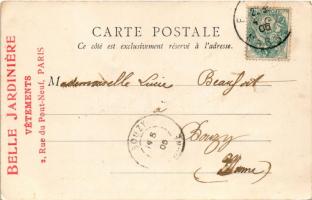 CARTE POSTALE
Ce côté est exclusivement réservé à l'adresse.
BELLE JARDINIÈRE
VÊTEMENTS
2, Rue du Pont-Neuf, PARIS
Mademoiselle Lucie Beaufort
à
Bouzy
(Marne)
BOUZY
05